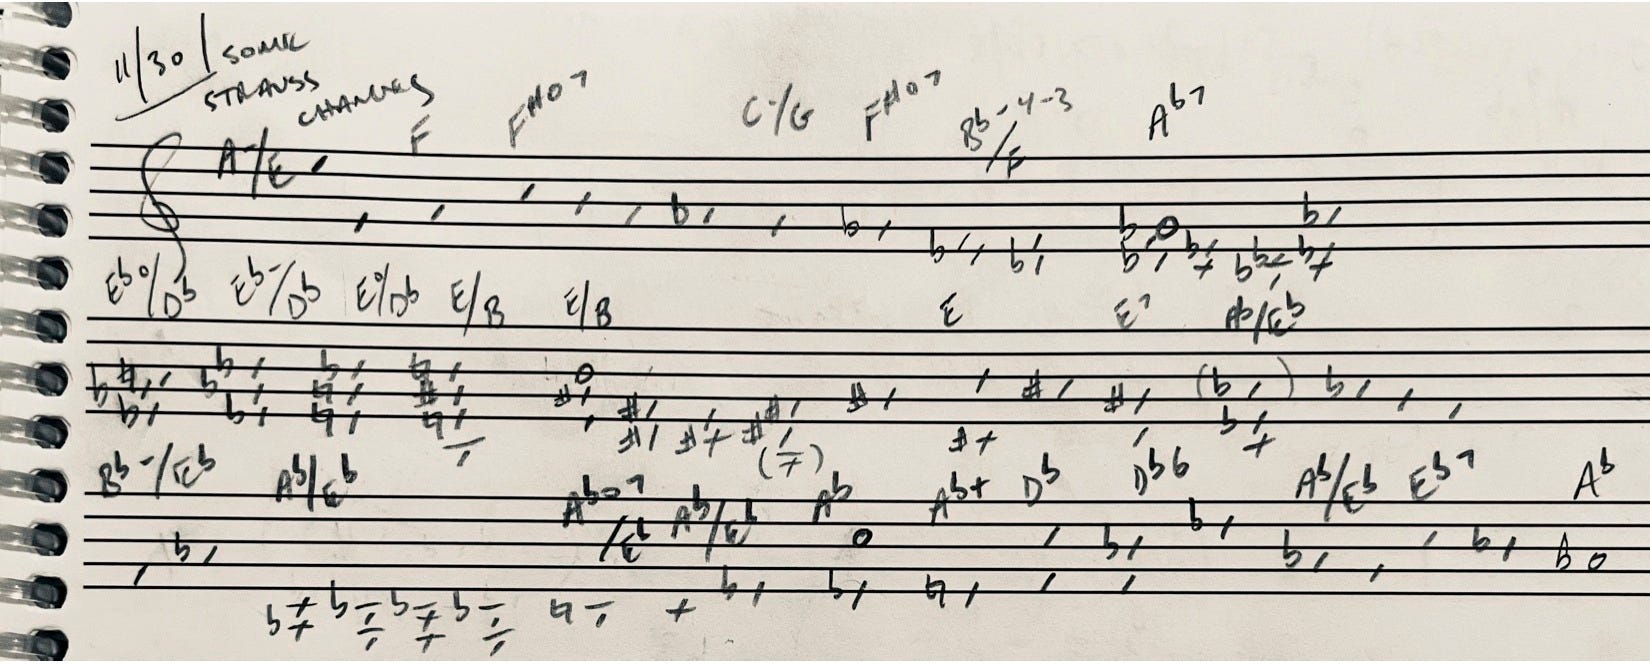 11/30 SOME
STRAUSS
CHANGES
A-/E F F#o7 C-/G F#o7 Bb-4-3/F Ab7
Ebo/Db Eb-/Db Eo/Db E/B E/B E E7 Ab/Eb
Bb-/Eb Ab/Eb Abo7/Eb Ab/Eb Ab Ab+ Db Db6 Ab/Eb Eb7 Ab